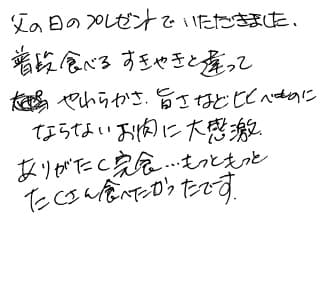 父の日のプレゼントでいただきました。
普段食べるすきやきと違って
やわらかさ、旨さなど比べものに
ならないお肉に大感激。
ありがたく完食…もっともっと
たくさん食べたかったです。